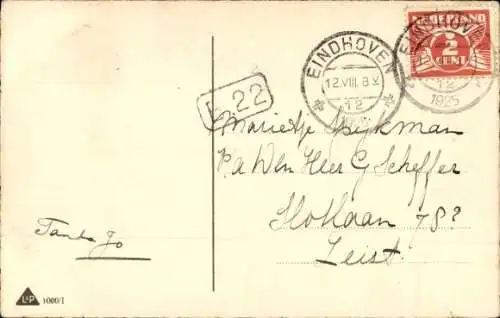 NEDERLAND
2
CENT
EINDHOVEN
12.VIII. 8 X
12
1925
EINDHOV
12
1925
22
Marietje Spijkman
P.a. Wln Heer G Scheffer
Slotlaan 78?
Zeist.
Tante Jo
L&P 1000/1